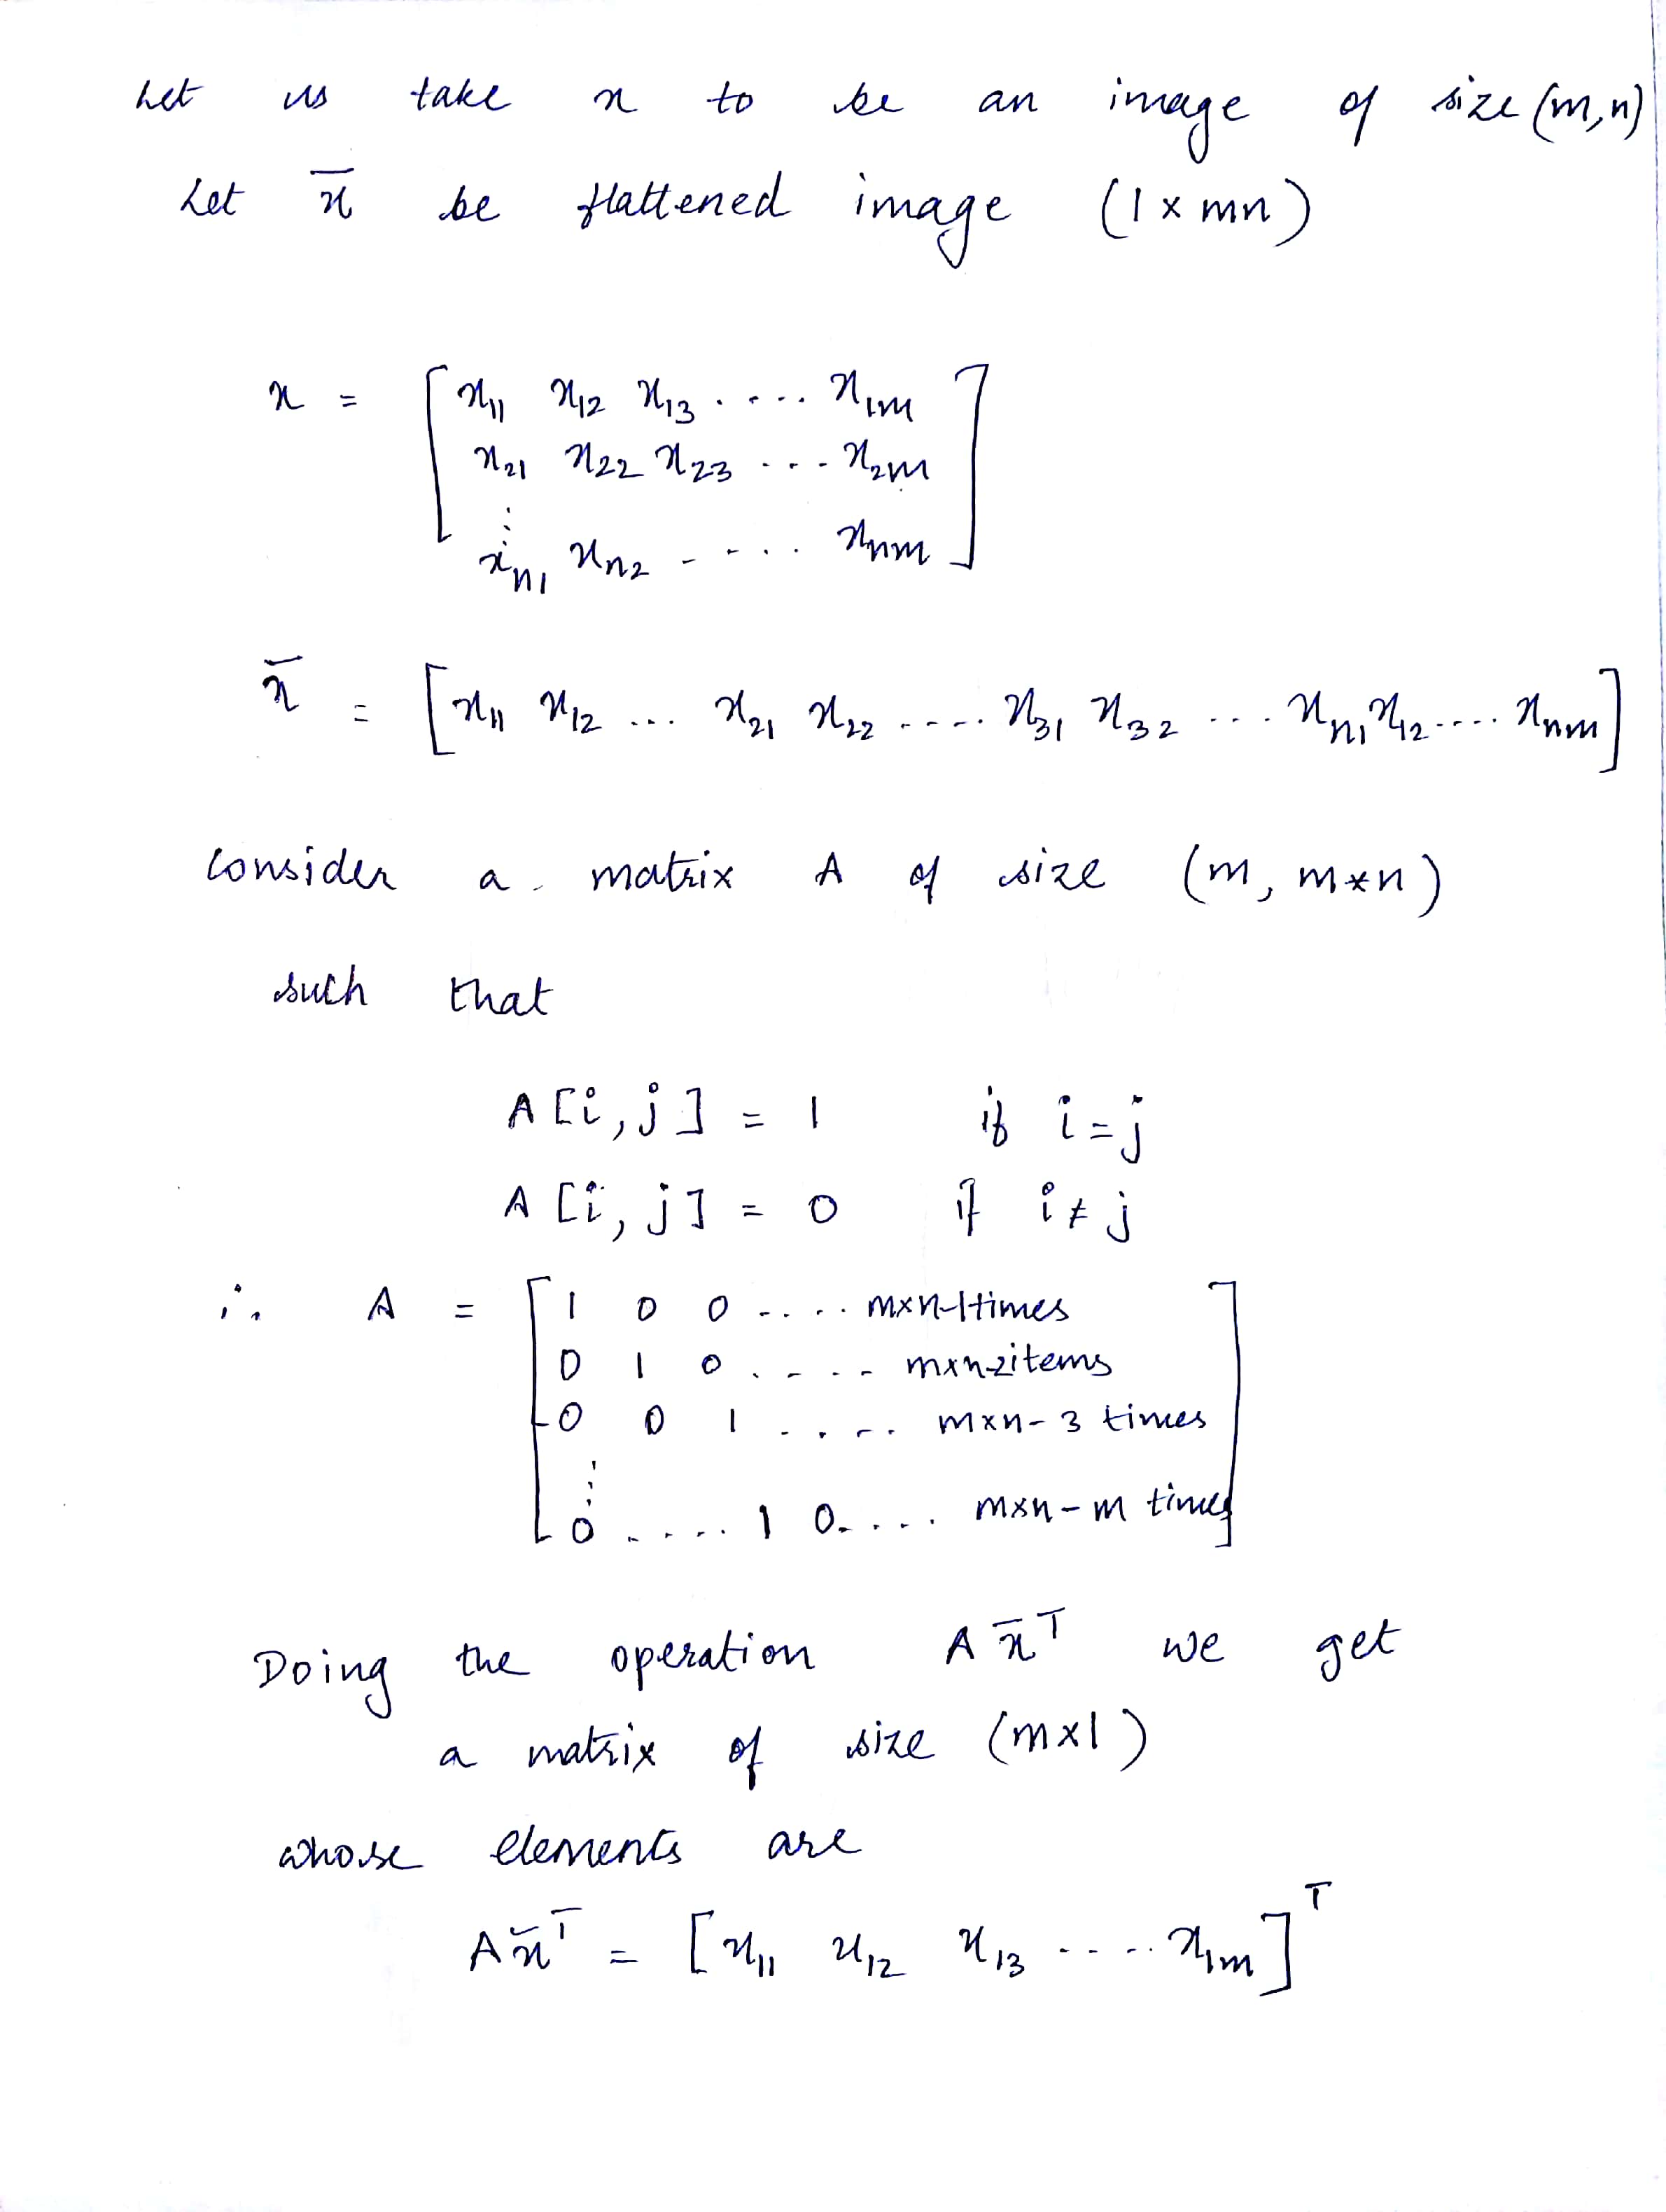 Let us take x to be an image of size (m,n)
Let x̄ be flattened image (1 x mn)
x = [ x11 x12 x13 .... x1m
x21 x22 x23 ... x2m
⋮
xn1 xn2 .... xnm ]
x̄ = [x11 x12 ... x21 x22 .... x31 x32 ... xn1 x12 .... xnm]
Consider a matrix A of size (m, m*n)
such that
A[i,j] = 1 if i=j
A[i,j] = 0 if i≠j
∴ A = [ 1 0 0 .... mxn-1times
0 1 0 .... mxn-2items
0 0 1 .... mxn-3 times
⋮
0 .... 1 0.... mxn-m times ]
Doing the operation A x̄ᵀ we get
a matrix of size (mx1)
whose elements are
Ax̄ᵀ = [x11 x12 x13 .... x1m]ᵀ